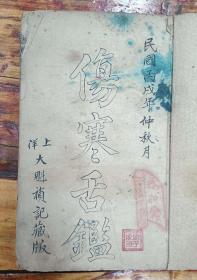 民國丙戌年仲秋月
傷寒舌鑑
上洋大魁楨記藏版